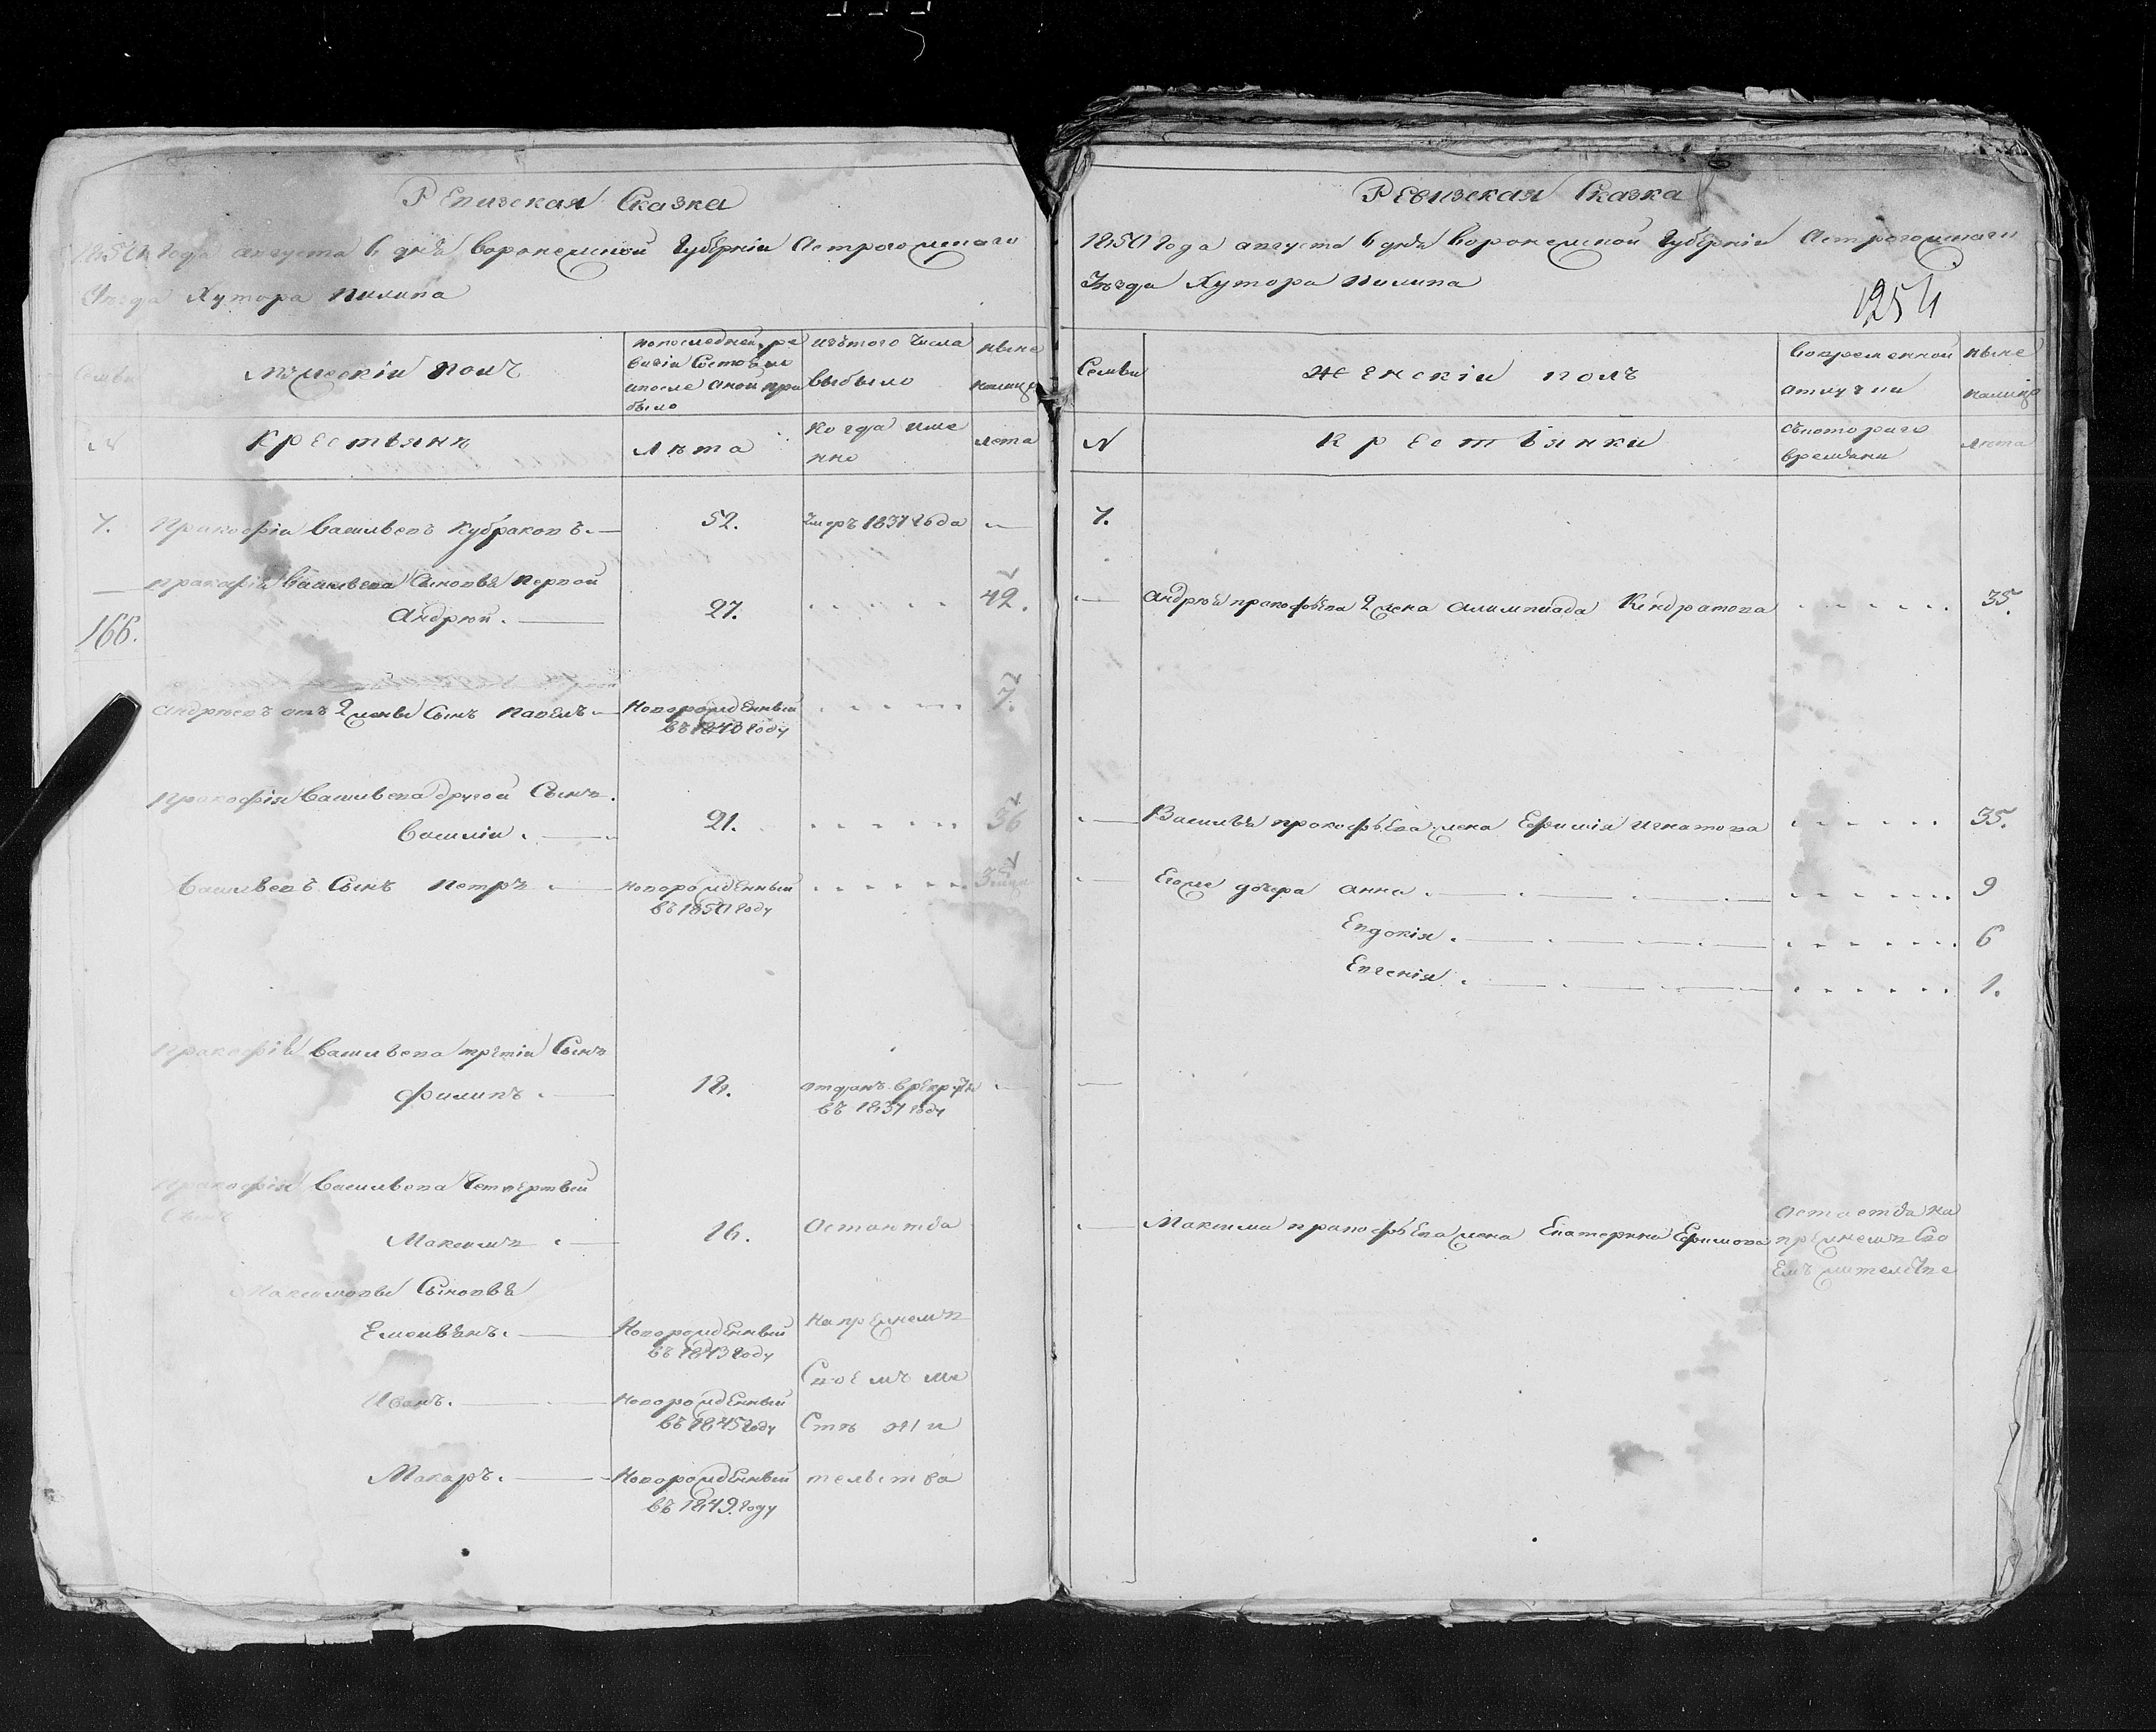 Ревизская Сказка
1850 Года августа 6 дня Воронежской Губернии Острогожскаго
Уезда Хутора Пилипа
Семьи
Мужескій полъ
по последней ре
визіи Состояло
и после оной при
было
изътого Числа
выбыло
ныне
налицо
N
Крестьянъ
Лѣта
Когда име
нно
лета
7. Пракофій Васильевъ Кубраковъ. 52. Умеръ 1837 Года
Пракофія Васильева Сыновья Первой
Андрюй. 27. 42.
166.
Андрюевъ отъ 2 жены Сынъ Павелъ Новорожденный 7.
въ 1843 Году
Пракофія Васильева другой Сынъ.
Василіи. 21. 36
Васильевъ Сынъ Петръ Новорожденный
въ 1850 Году
Пракофія Васильева третіи Сынъ
Филипъ. 18. отданъ Врекруты
въ 1837 Году
Пракофія Васильева Четвертый
Сынъ
Максимъ 16. Остается
Максимовы Сыновья
Емельянъ. Новорожденный напрежнемъ
въ 1843 Году
Своемъ ме
Иванъ. Новорожденный
въ 1845 Году Сте жи
Макаръ. Новорожденный тельства
въ 1849. Году
Ревизская Сказка
1850 Года августа 6 дня Воронежской Губернии Острогожскаго
Уезда Хутора Пилипа
1254
Семьи
Женскіи полъ
Вовременной
отлучки
ныне
налицо
N
Крестьянки
Съкотораго
времяни
Лѣта
7.
Андрюя Пракофьева 2 жена Алимпиада Кондратова 35.
Василья Пракофьева жена Ефимія Игнатова 35.
Егоже дочера Анна 9
Евдокія. 6
Евгенія. 1.
Максима Пракофьева жена Екатерина Ефимова
Остается на
прежнемъ Сво
емъ жителстве